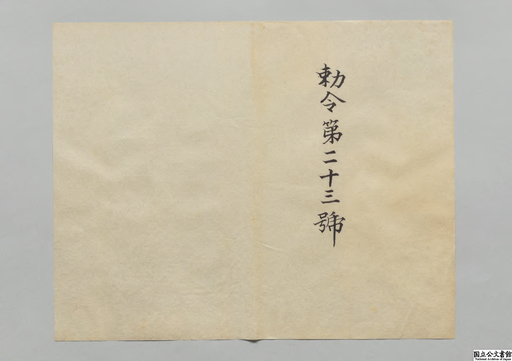 勅令第二十三號
国立公文書館
National Archives of Japan